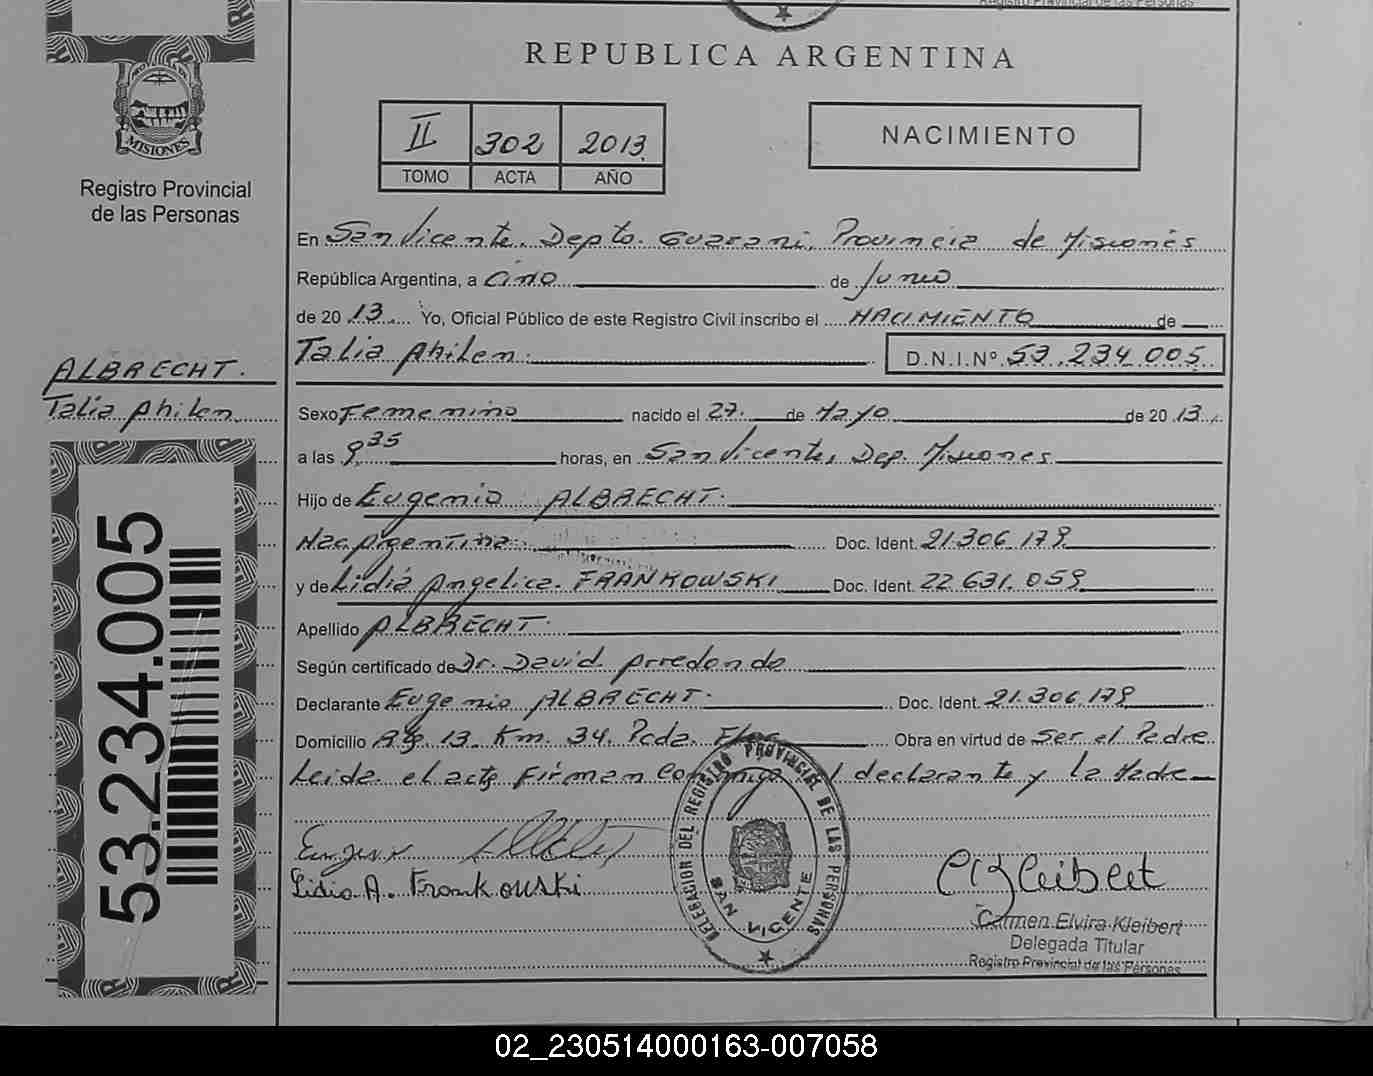 Registro Provincial de las Personas
REPUBLICA ARGENTINA
MISIONES
Registro Provincial
de las Personas
II 302 2013
TOMO ACTA AÑO
NACIMIENTO
En San Vicente, Depto. Guarani, Provincia de Misiones
República Argentina, a Cinco de Junio
de 2013 Yo, Oficial Público de este Registro Civil inscribo el NACIMIENTO de
Talia Ahilen D.N.I.Nº 53.234.005
ALBRECHT.
Talia Ahilen
Sexo Femenino nacido el 27 de Mayo de 2013
a las 9,35 horas, en San Vicente, Dep. Misiones
Hijo de Eugenio ALBRECHT
Nac Argentina Doc. Ident. 21.306.179
y de Lidia Angelica FRANKOWSKI Doc. Ident. 22.631.059
Apellido ALBRECHT
Según certificado de Dr. David Arredondo
Declarante Eugenio ALBRECHT Doc. Ident. 21.306.179
Domicilio Km. 34. Pcda. Obra en virtud de Ser el Padre
Leida el acta firman declarante y la Madre
53.234.005
Lidia A. Frankouski
DELEGACION DEL REGISTRO PROVINCIAL DE LAS PERSONAS
SAN VICENTE
Kleibert
Carmen Elvira Kleibert
Delegada Titular
Registro Provincial de las Personas
02_230514000163-007058